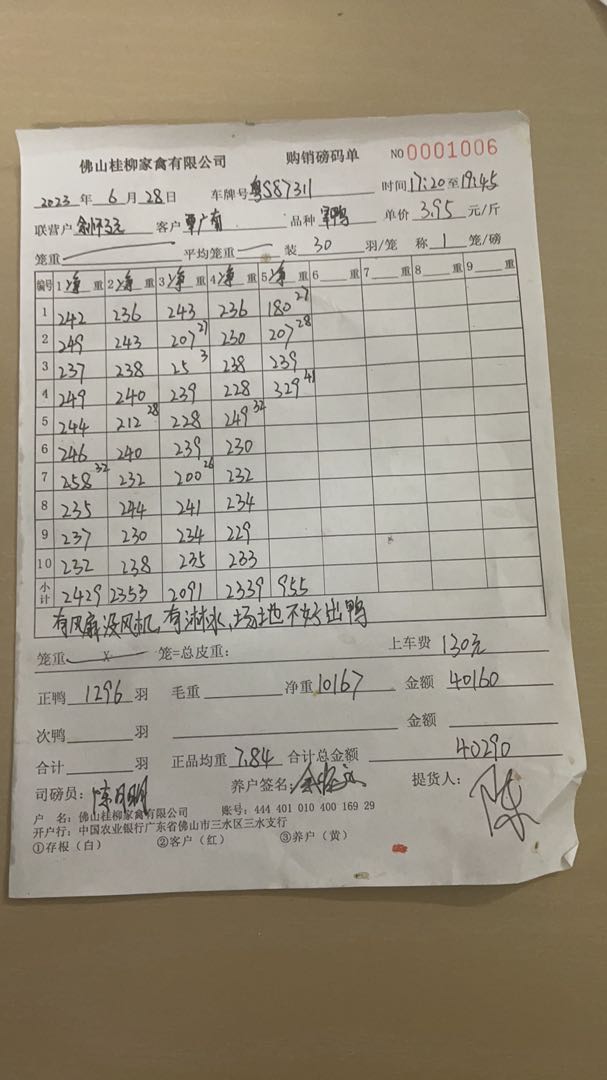 佛山桂柳家禽有限公司 购销磅码单 NO 0001006
2023 年 6 月 28 日 车牌号 粤S87311 时间 17:20 至 19:45
联营户 客户 覃广有 品种 军鸭 单价 3.95 元/斤
笼重 平均笼重 装 30 羽/笼 称 1 笼/磅
编号 1 净 重 2 净 重 3 净 重 4 净 重 5 净 重 6 重 7 重 8 重 9 重
1 242 236 243 236 180 27
2 249 243 207 27 230 207 28
3 237 238 25 3 238 239
4 249 240 239 228 329 41
5 244 212 28 228 249 32
6 246 240 239 230
7 258 32 232 200 26 232
8 235 244 241 234
9 237 230 234 229
10 232 238 235 233
小计 2429 2353 2091 2339 955
有风扇没风机,有淋水,场地不好出鸭
笼重 x 笼=总皮重: 上车费 130元
正鸭 1296 羽 毛重 净重 10167 金额 40160
次鸭 羽 金额
合计 羽 正品均重 7.84 合计总金额 40290
司磅员: 陈月明 养户签名: 提货人: 陈
户 名: 佛山桂柳家禽有限公司 账号: 444 401 010 400 169 29
开户行: 中国农业银行广东省佛山市三水区三水支行
①存根(白) ②客户(红) ③养户(黄)